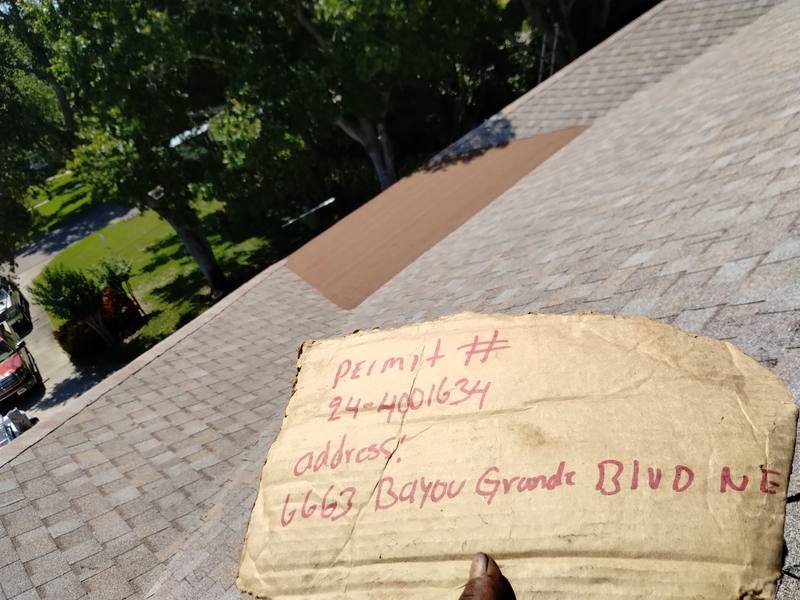 Permit #
24-4001634
address:
6663 Bayou Grande Blvd NE